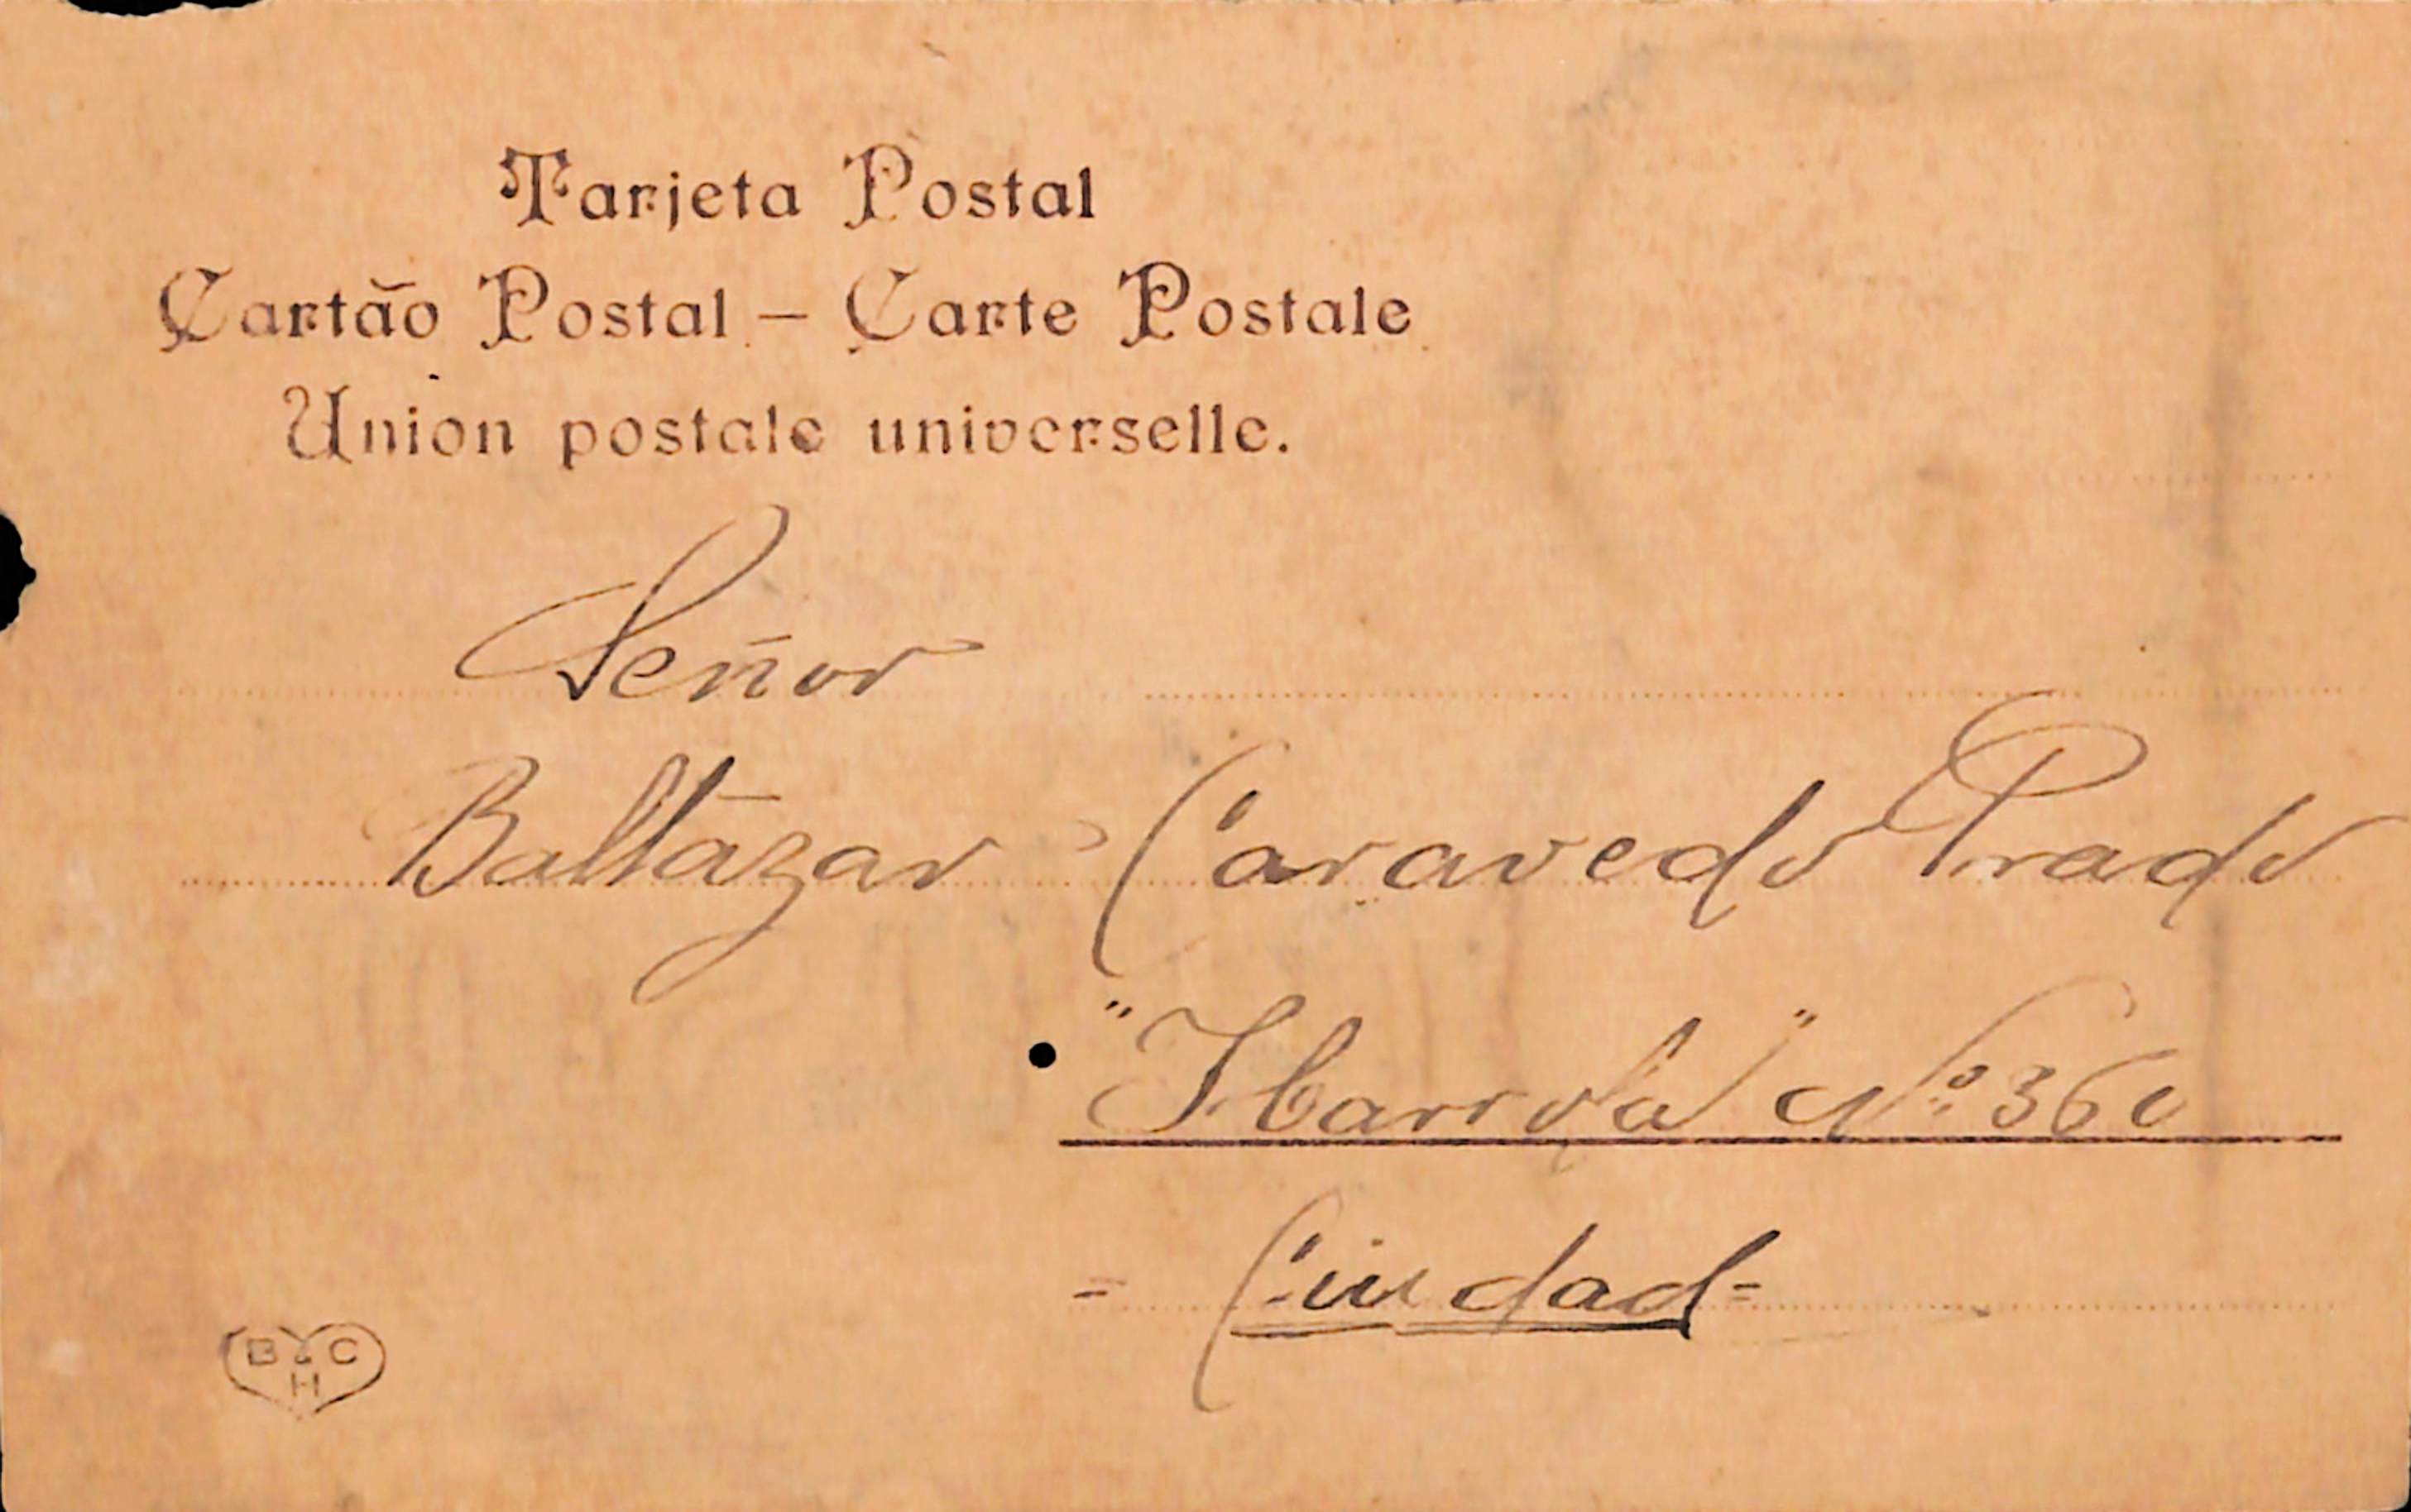 Tarjeta Postal
Cartão Postal – Carte Postale
Union postale universelle.
Señor
Baltazar Caravedo Prado
" Ibarrola " Nº 360
= Ciudad =
B & C
H